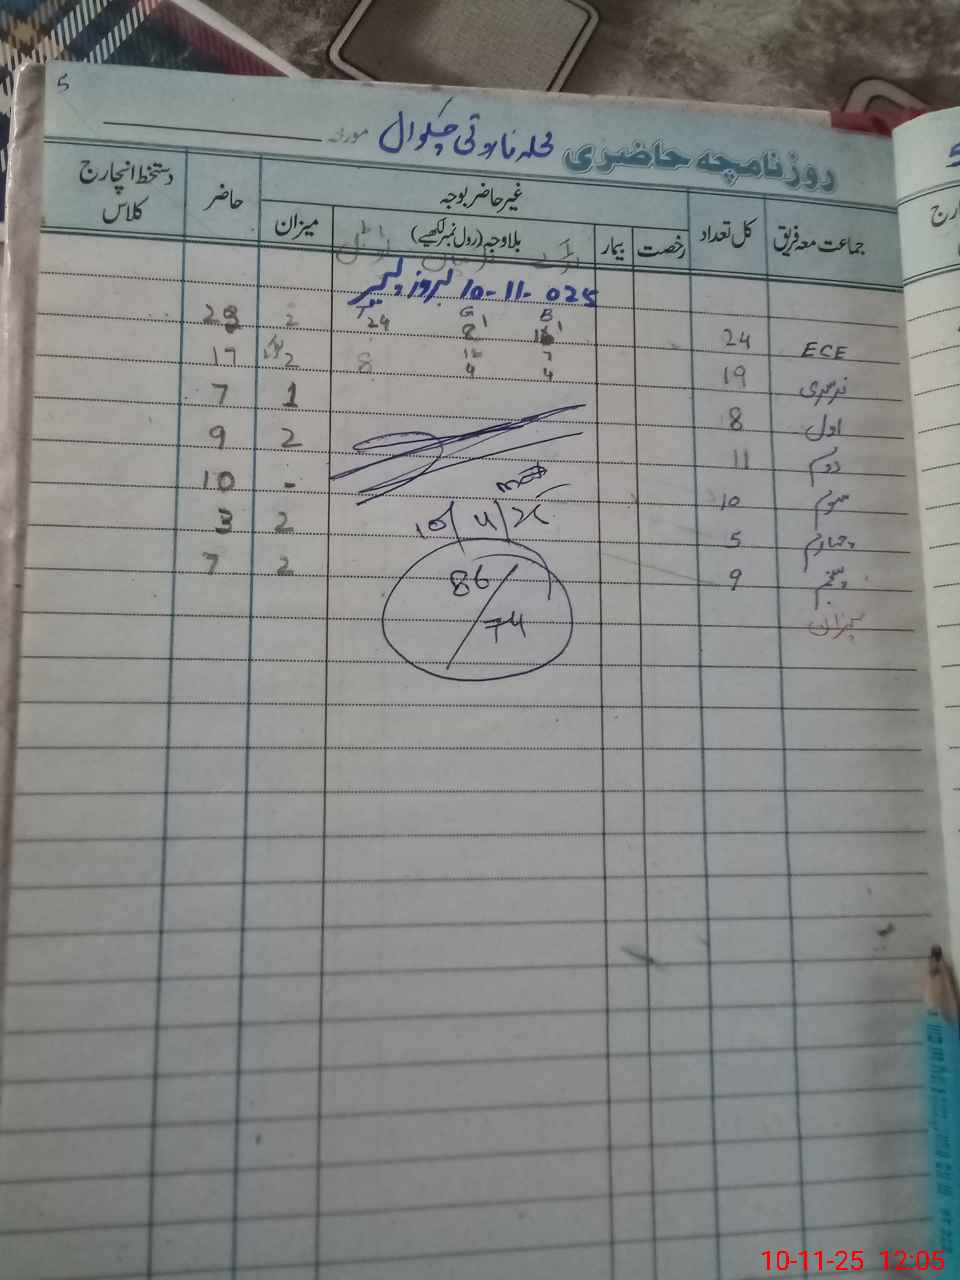 5
روزنامچہ حاضری محلہ فاروقی چکوال مورخہ
جماعت معہ فریق کل تعداد غیر حاضر بوجہ حاضر دستخط انچارج کلاس
رخصت بیمار بلاوجہ (رول نمبر لکھیے) میزان
10-11-025 بروز پیر
ECE 24 B G T 24 2
16 1 8 1
نرسری 19 12 7 8 2 17
4 4
اول 8 1 7
دوم 11 2 9
سوم 10 - 10
چہارم 5 2 3
پنجم 9 2 7
میزان
86/74
10-11-25 12:05